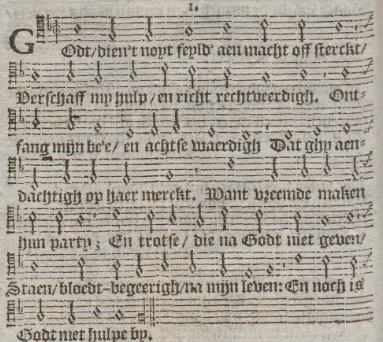 1.
GOdt/dien't noyt feyld' aen macht off sterckt/
Verschaff my hulp/en richt rechtveerdigh. Ont-
fang mijn be'e/ en achtse waerdigh Dat ghy aen-
dachtigh op haer merckt. Want vreemde maken
hun party; En trotse/ die na Godt niet geven/
Staen/bloedt-begeerigh/na mijn leven: En noch is
Godt met hulpe by.